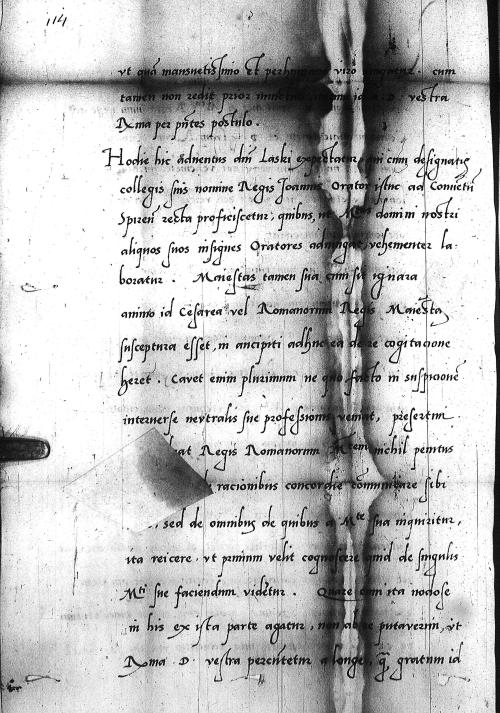 114
vt quã mansuetissimo et viro cum
tamen non redit prior D. vestra
Rma per pñtes postulo.
Hodie hic aduentus dni Laski expectatur, qui cum designatis
collegis suis nomine Regis Joannis Orator istuc ad Conuentũ
Spireñ recta proficiscetur, quibus ut Mtas domini nostri
aliquos suos insignes Oratores adiungat, vehementer la-
boratur. Maiestas tamen sua cum sit ignara
animo id Cesarea vel Romanorum Regis Maiesta
susceptura esset, in ancipiti adhuc ea de re cogitacione
heret. Cavet enim plurimum ne quo facto in suspicionẽ
interuerse neutralis sue professionis veniat, presertim
Regis Romanorum Mtem nichil penitus
racionibus concordie cõmunicare sibi
sed de omnibus de quibus a Mte sua inquiritur,
ita reicere, vt primum velit cognoscere quid de singulis
Mti sue faciendum videtur. Quare cum ita nodose
in his ex ista parte agatur, non abs re putaverim, vt
Rma D. vestra percutetur a longe, gratum id